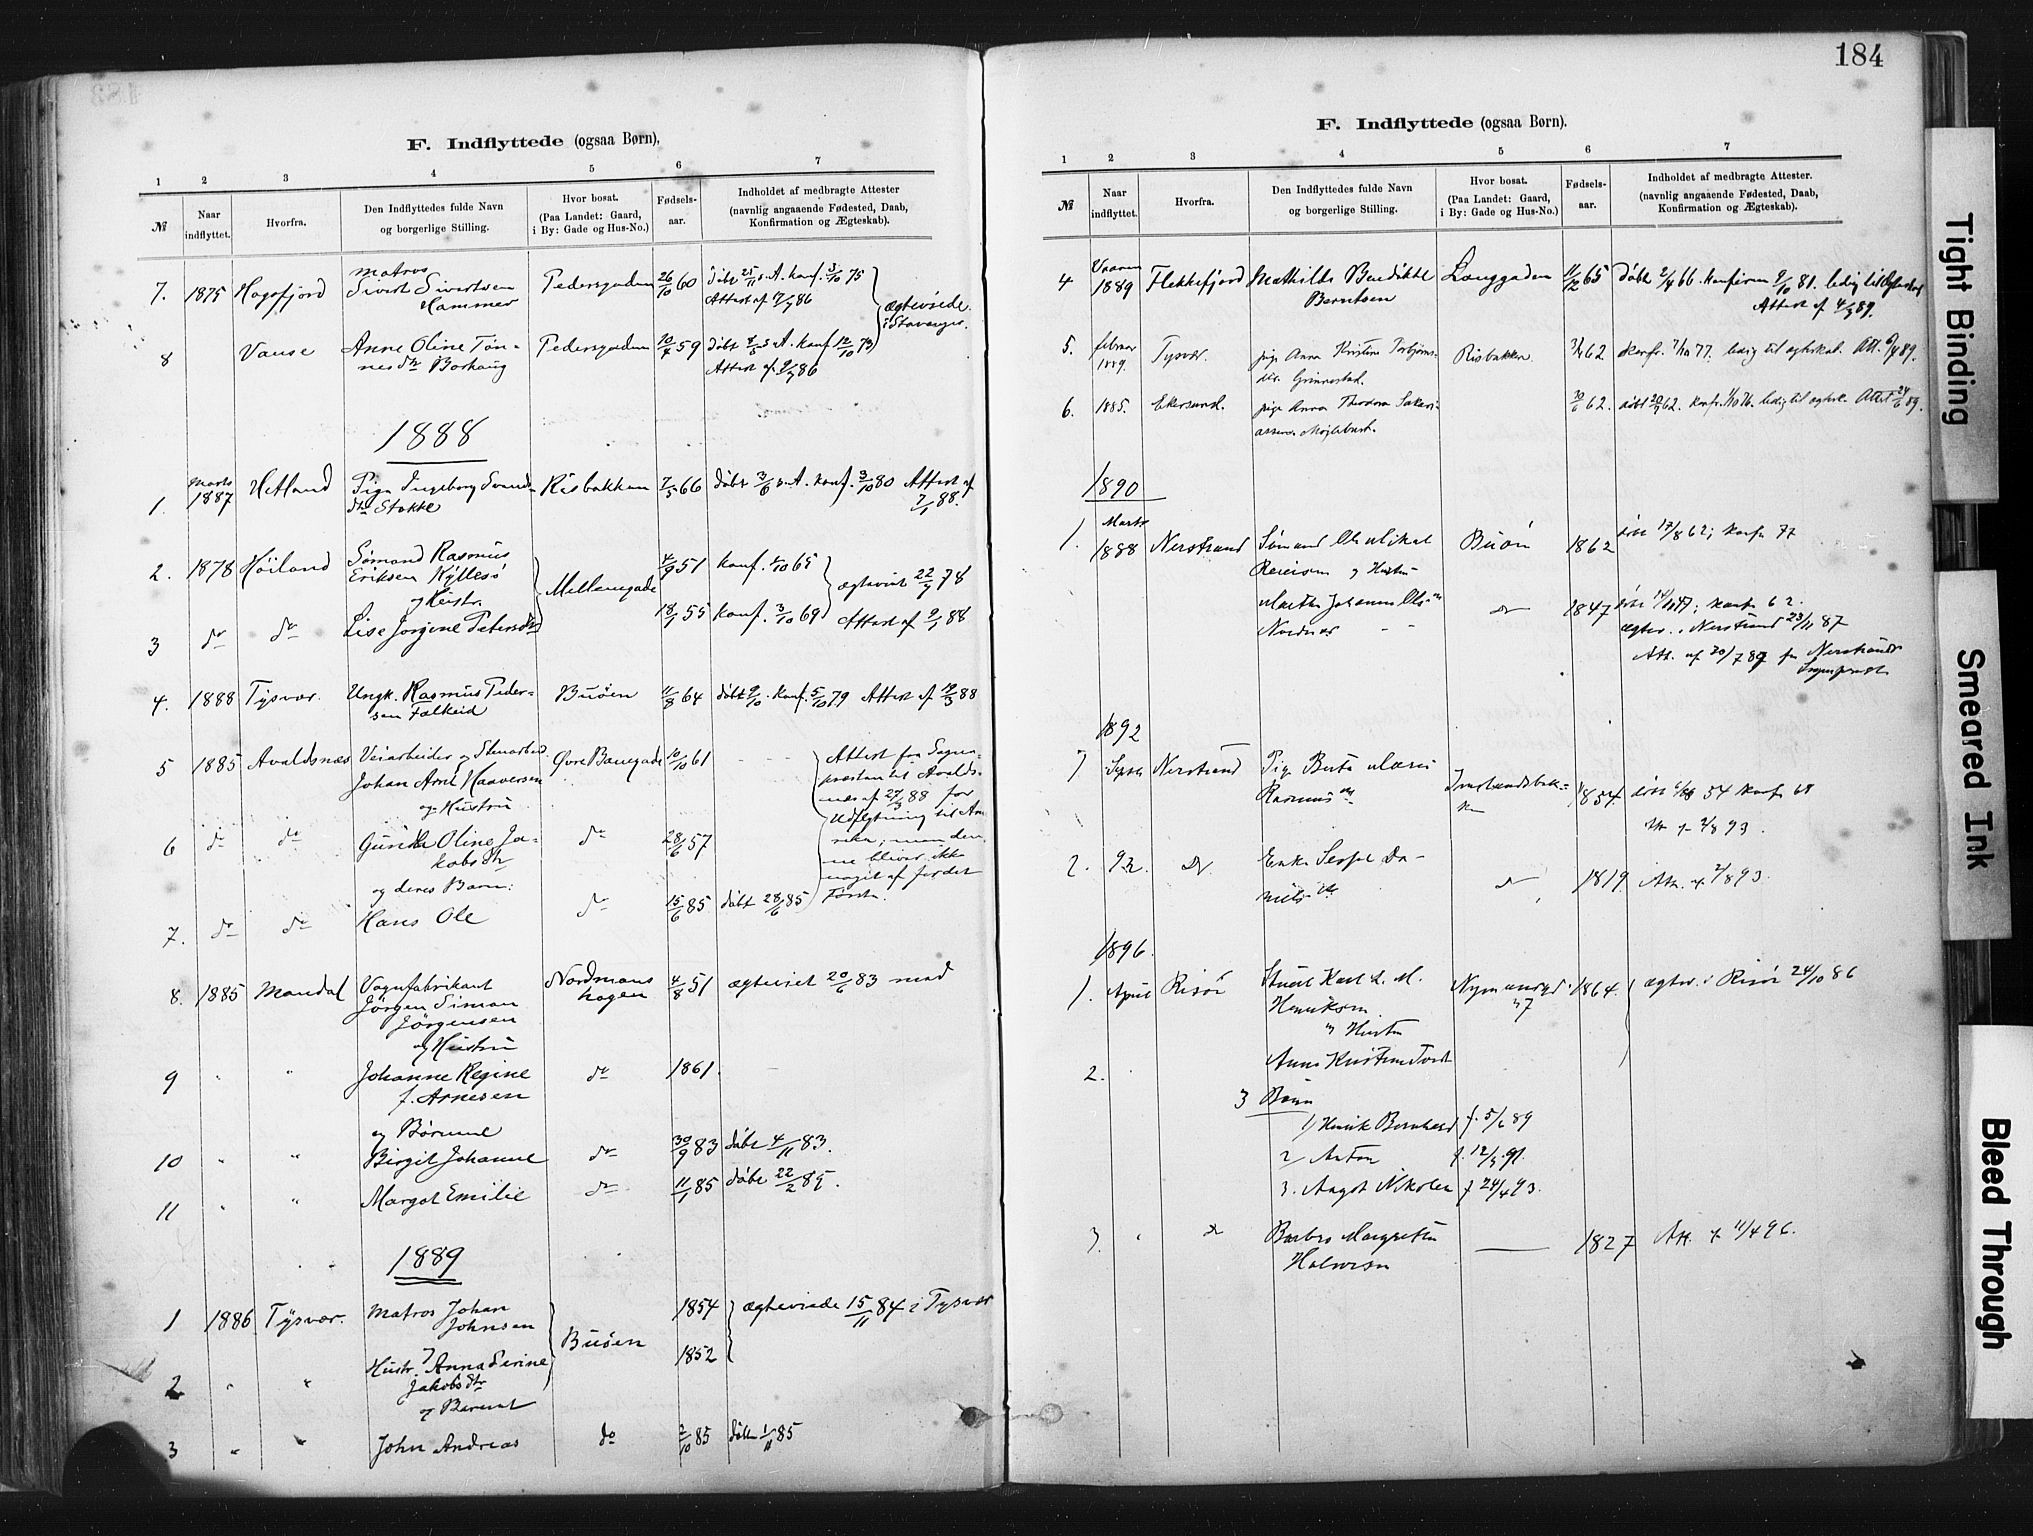 184
F. Indflyttede (ogsaa Børn),
1 2 3 4 5 6 7
№
Naar indflyttet.
Hvorfra.
Den Indflyttedes fulde Navn og borgerlige Stilling.
Hvor bosat. (Paa Landet: Gaard, i By: Gade og Hus-No.)
Fødsels-aar.
Indholdet af medbragte Attester (navnlig angaaende Fødested, Daab, Konfirmation og Ægteskab).
7. 1875 Høgsfjord Matros Sivert Sivertsen Hammer Pedersgaden 26/10 60 døbt 25/11 s. A. konf. 3/10 75
Attest af 86
ægteviede i Stavanger.
8 Vanse Anne Oline Tøn-
nesdtr Borhaug Pedersgaden 59 døbt s. A. konf. 12/10 73
Attest af 86
1888
1. Marts 1887 Hetland Pige Ingeborg Svends-
dtr Stokke Risbakken 7/5 66 døbt 3/6 s. A. konf. 3/10 80 Attest af
7/1 88.
2. 1878 Høiland Sømand Rasmus
Eriksen Kyllesø
og Hustr. Mellemgade 4/9 51 konf. 65
ægteviet 22/9 78
3 do do Lise Jorgine Petersdtr 18/1 55 konf. 3/10 69 Attest af 9/1 88
4. 1888 Tysvær. Ungk. Rasmus Peder-
sen Falkeid Buøen 11/8 64 døbt 9/10. konf. 5/10 79 Attest af 88
5 1885 Avaldsnæs Veiarbeider og Stenarbeid.
Johan Arne Haaversen
og Hustru Øvre Banegade 10/10 61
Attest fra Sogne-
præsten til Avalds-
næs af 27/3 88 for
Udflytning til Ame
rika, men den-
ne bliver ikke
noget af for det
Første.
6 do do Oline Ja-
kobsdtr do 28/6 57
og deres Barn:
7. do do Hans Ole do 15/6 85 døbt 28/6 85
8. 1885 Mandal Vognfabrikant
Jörgen Simon
Jörgensen
og Hustru Nordmans
hagen 4/8 51 ægteviet 20/6 83 med
9 " " Johanne Regine
f. Arnesen do 1861.
og Børnene
10 " " Birgit Johanne do 30/9 83 døbt 4/11 83.
11 " " Margot Emilie do 11/1 85 døbt 22/2 85.
1889
1 1886 Tysvær. Matros Johan
Johnsen Buöen 1854 ægteviede 15/11 84 i Tysvær
2 " " Hustr. Anna Serine
Jakobsdtr
og Barnet 1852
3 " " John Andreas do 2/10 85 døbt 1/11 85
F. Indflyttede (ogsaa Børn).
1 2 3 4 5 6 7
№
Naar indflyttet.
Hvorfra.
Den Indflyttedes fulde Navn og borgerlige Stilling.
Hvor bosat. (Paa Landet: Gaard, i By: Gade og Hus-No.)
Fødsels-aar.
Indholdet af medbragte Attester. (navnlig angaaende Fødested, Daab, Konfirmation og Ægteskab).
4 Vaaren 1889 Flekkefjord Mathilde Bendikte
Berntsen Langgaden 11/12 65 døbt 2/4 66. Konfirm. 81. ledig til Ægteskab
Attest af 89.
5. februar 1889. Tysvær. pige Anna Kristine Torbjørns-
dtr. Grinnestad. Risbakken 62 konfr. 77. ledig til ægtesk. Att. 89.
6. 1885. Ekersund. pige Anna Theodora 30/6 62. døbt 62. konfr. ledig til ægtesk. Attest 24/6 89.
1890
1. Marts 1888 Nerstrand Sømand Ole Mikal
Reiersen og Hustru Buøn 1862 døbt 17/8 62; konfr 77
Marthe Johanne Ols
do 1847 konfr 62.
ægtev. i Nerstrand 23/11 87
Att. af 20/7 89 fra Nerstrands
Sogneprest
1892
1 Septbr Nerstrand Pige Berta Marie
Rasmusdtr 1854 54 konfr 68
Att. af 2/8 93.
2. 92. Do Enke Serine Da-
nielsdtr do 1819 Att. af 2/8 93.
1896.
1. April Risør Karl L. M.
Henriksen
og Hustru Nymansgd.
7 1864. ægtev. i Risör 24/10 86
2. Anne Kristine
3 Børn
1) Henrik Bernhard f. 5/6 89
2/ Anton f. 91.
3. Aagot Nikolea f 24/4 93.
3. " do Barbro Margrethe
Halvorsen 1827 Att. af 11/4 96.
Tight Binding
Smeared Ink
Bleed Through